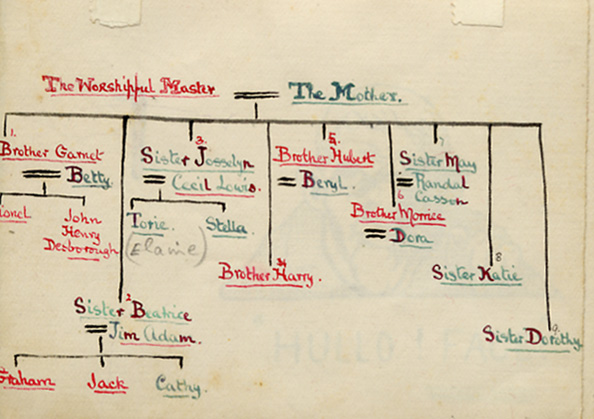 The Worshipful Master = The Mother.
1. 3. 5. 7
Brother Garnet
= Betty
Sister Josselyn
= Cecil Lewis.
Brother Hubert
= Beryl.
Sister May
= Randal
Casson
6
Brother Morrice
= Dora
ionel
John
Henry
Desborough
Torie.
(Elaine)
Stella.
4
Brother Harry.
8
Sister Katie
2
Sister Beatrice
= Jim Adam.
9.
Sister Dorothy
Graham
Jack
Cathy.